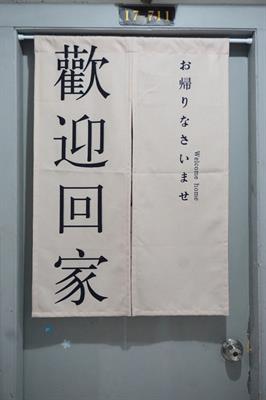 17 711
歡迎回家
お帰りなさいませ
Welcome home